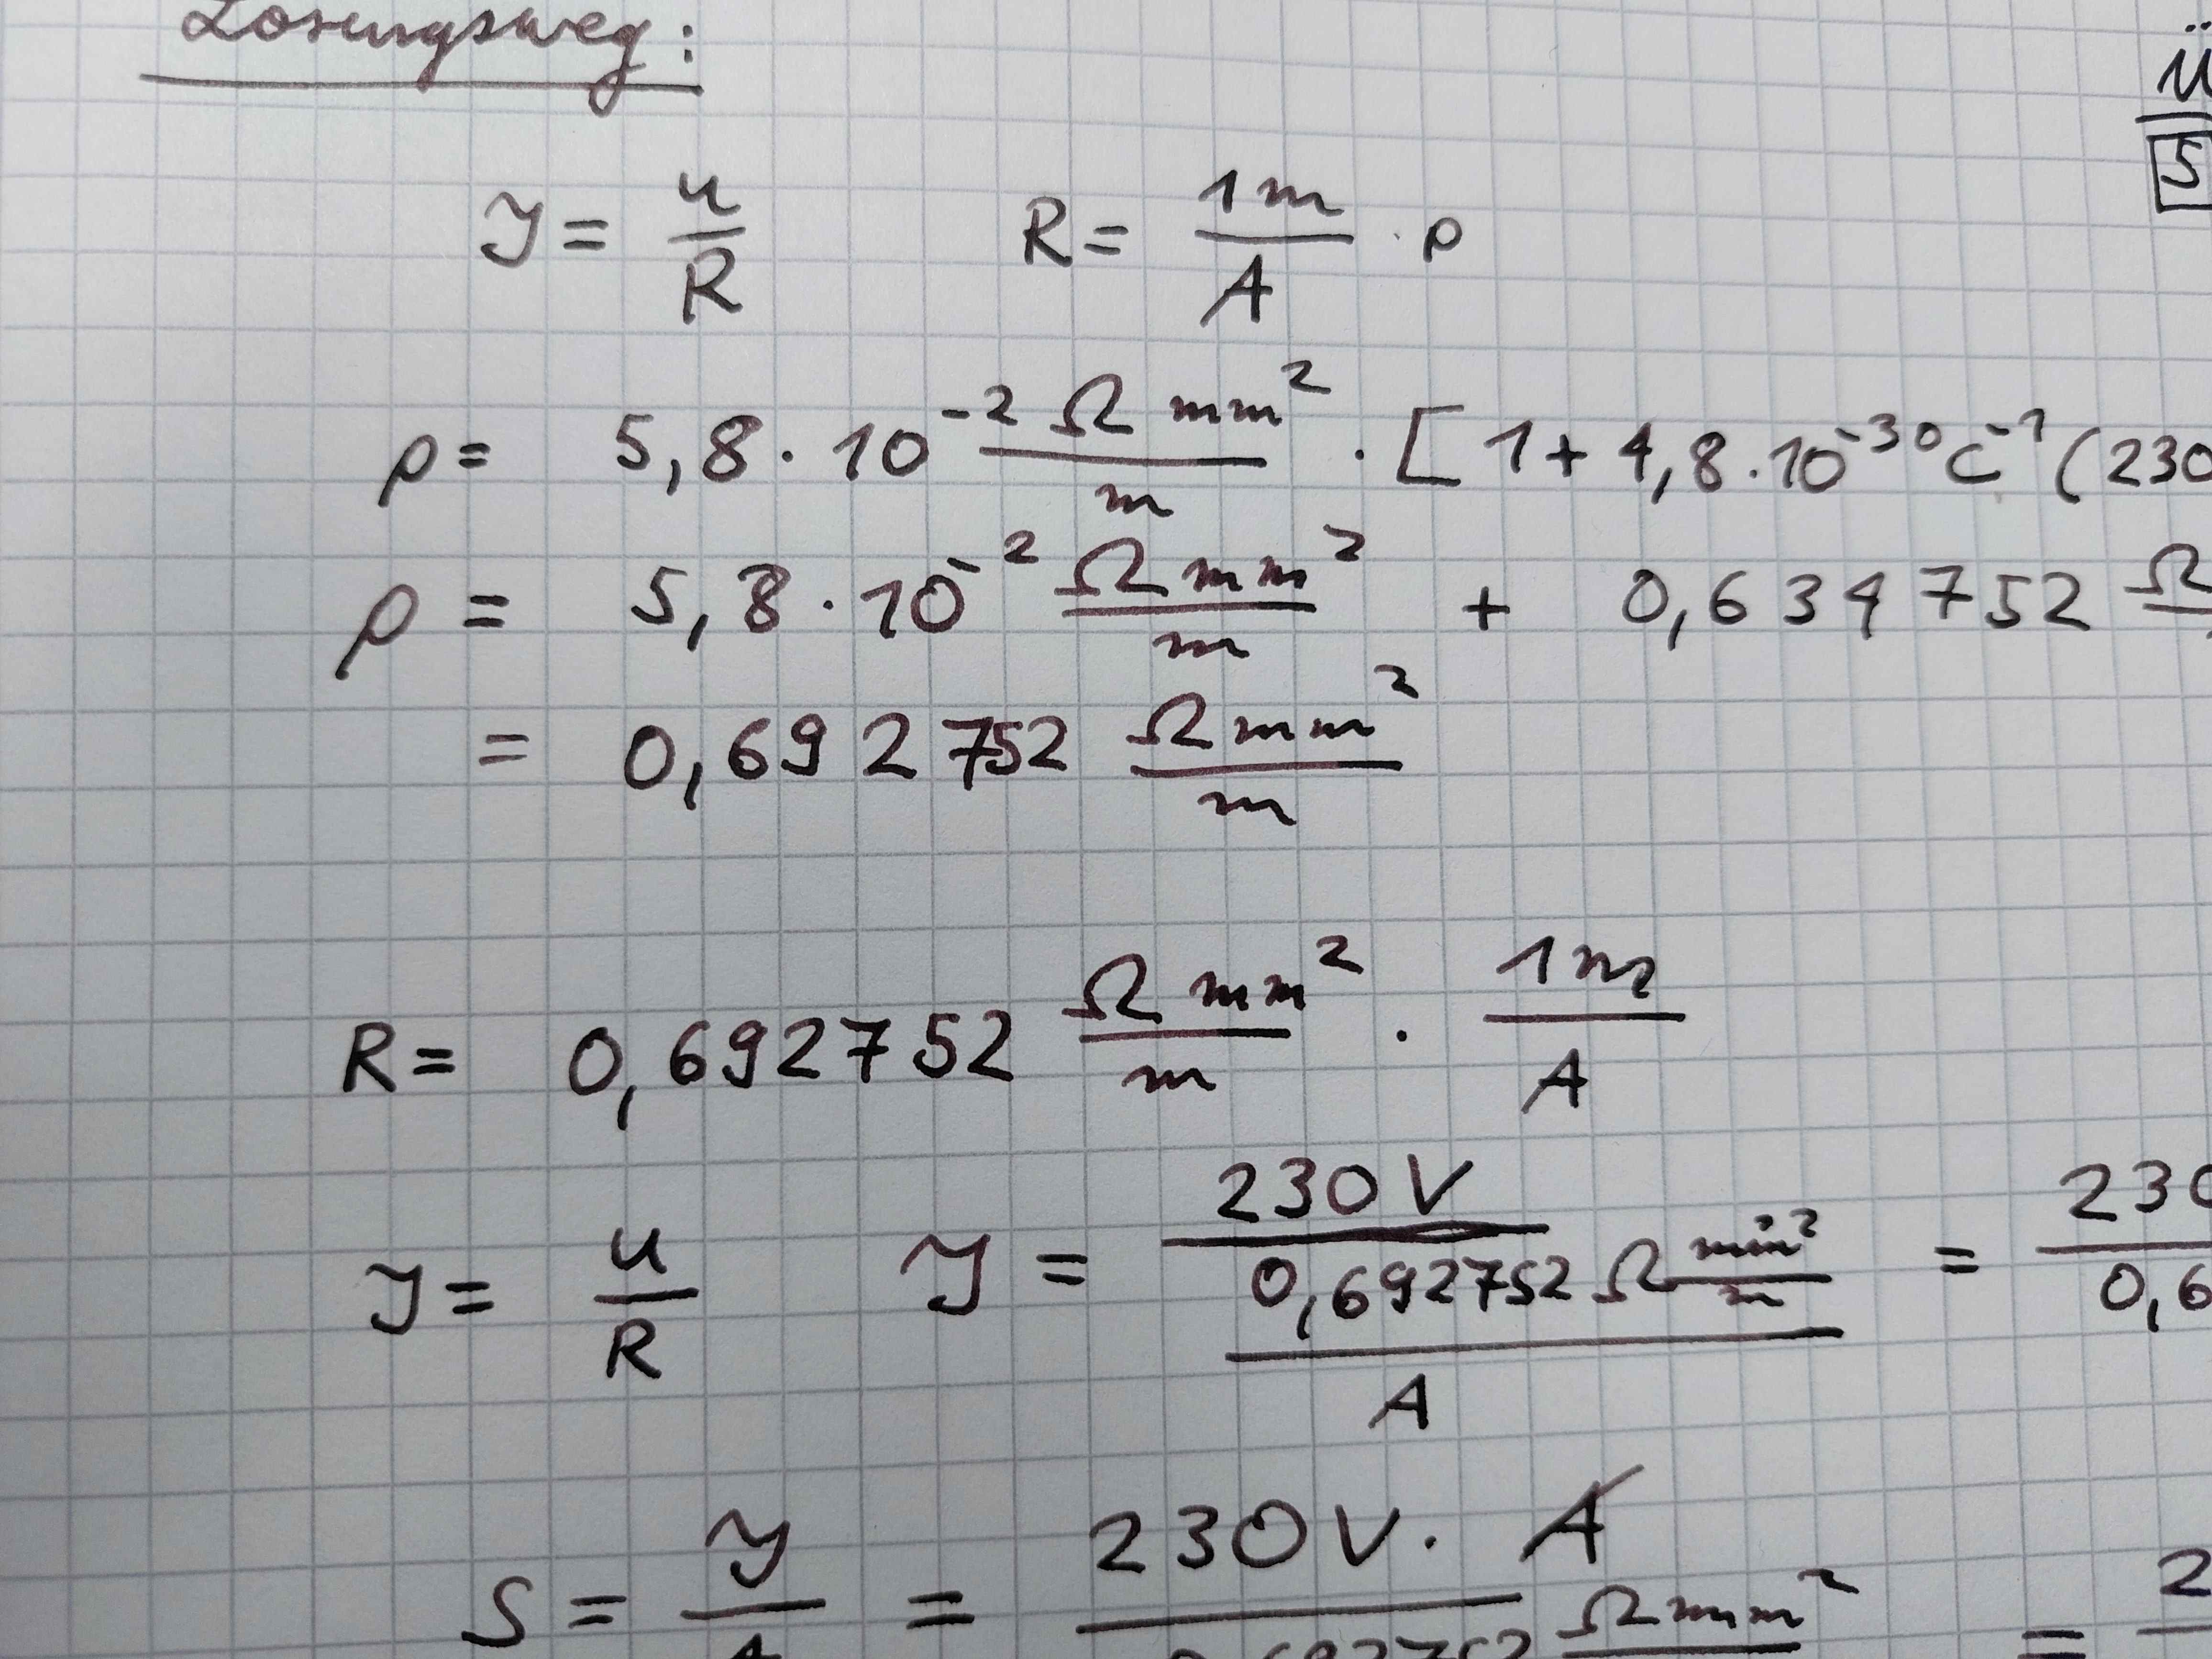 Lösungsweg:
Ü
5
I = U/R R = 1m/A · ρ
ρ = 5,8 · 10⁻² Ω mm²/m · [1 + 4,8 · 10⁻³ °C⁻¹ (230
ρ = 5,8 · 10⁻² Ω mm²/m + 0,634752 Ω
= 0,692752 Ω mm²/m
R = 0,692752 Ω mm²/m · 1m/A
I = U/R I = 230 V / (0,692752 Ω mm²/m / A) = 230 / 0,6
S = I/A = 230 V · A / 0,692752 Ω mm² = 2